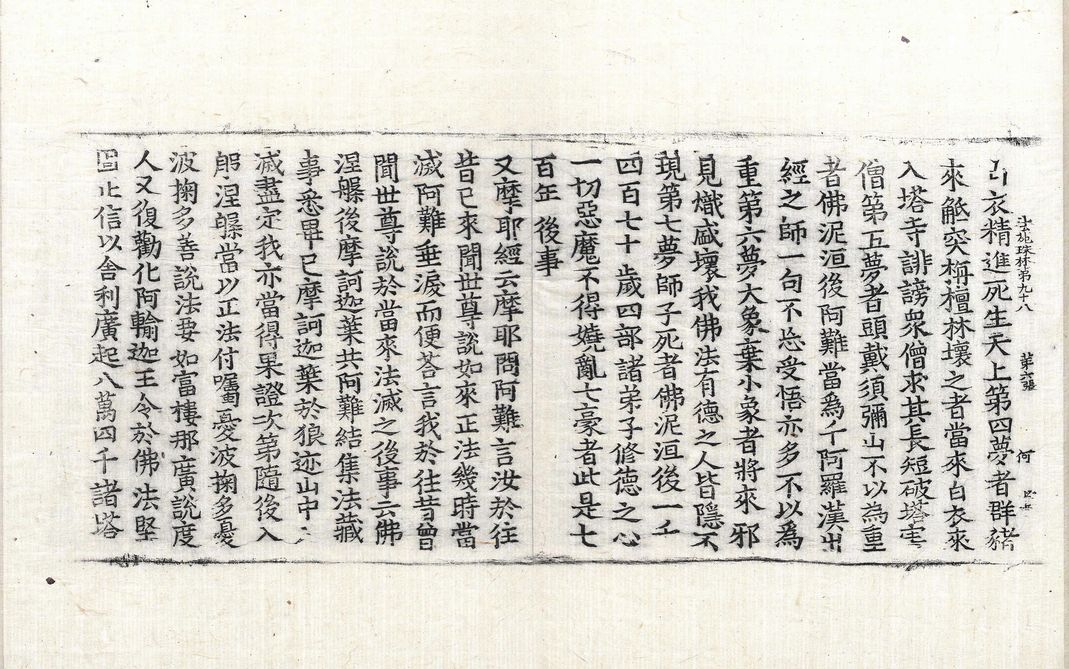 法苑珠林第九十八 第 張 何
白衣精進死生天上第四夢者群猪
來觝突栴檀林壞之者當來白衣來
入塔寺誹謗衆僧求其長短破塔害
僧第五夢者頭戴須彌山不以為重
者佛泥洹後阿難當為千阿羅漢出
經之師一句不忘受悟亦多不以為
重第六夢大象棄小象者將來邪
見熾盛壞我佛法有德之人皆隱不
現第七夢師子死者佛泥洹後一千
四百七十歲四部諸弟子修德之心
一切惡魔不得嬈亂七豪者此是七
百年後事
又摩耶經云摩耶問阿難言汝於往
昔已來聞世尊說如來正法幾時當
滅阿難垂淚而便荅言我於往昔曾
聞世尊說於當來法滅之後事云佛
涅槃後摩訶迦葉共阿難結集法藏
事悉畢已摩訶迦葉於狼迹山中入
滅盡定我亦當得果證次第隨後入
般涅槃當以正法付囑憂波掬多憂
波掬多善說法要如富樓那廣說度
人又復勸化阿輸迦王令於佛法堅
固正信以舍利廣起八萬四千諸塔